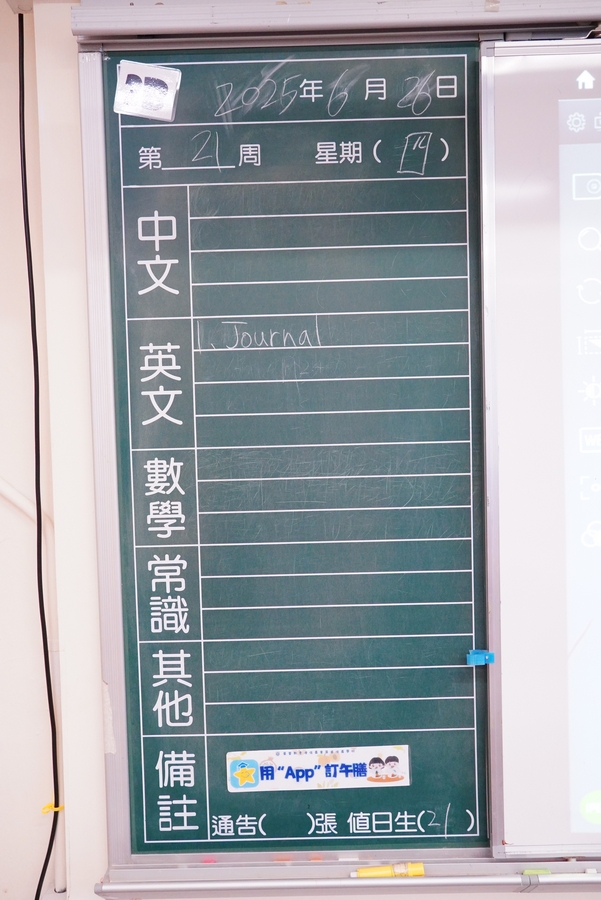 2025年6月26日
第21周 星期(四)
中文
英文
1. Journal
數學
常識
其他
備註
用“App”訂午膳
通告( )張 值日生(21)